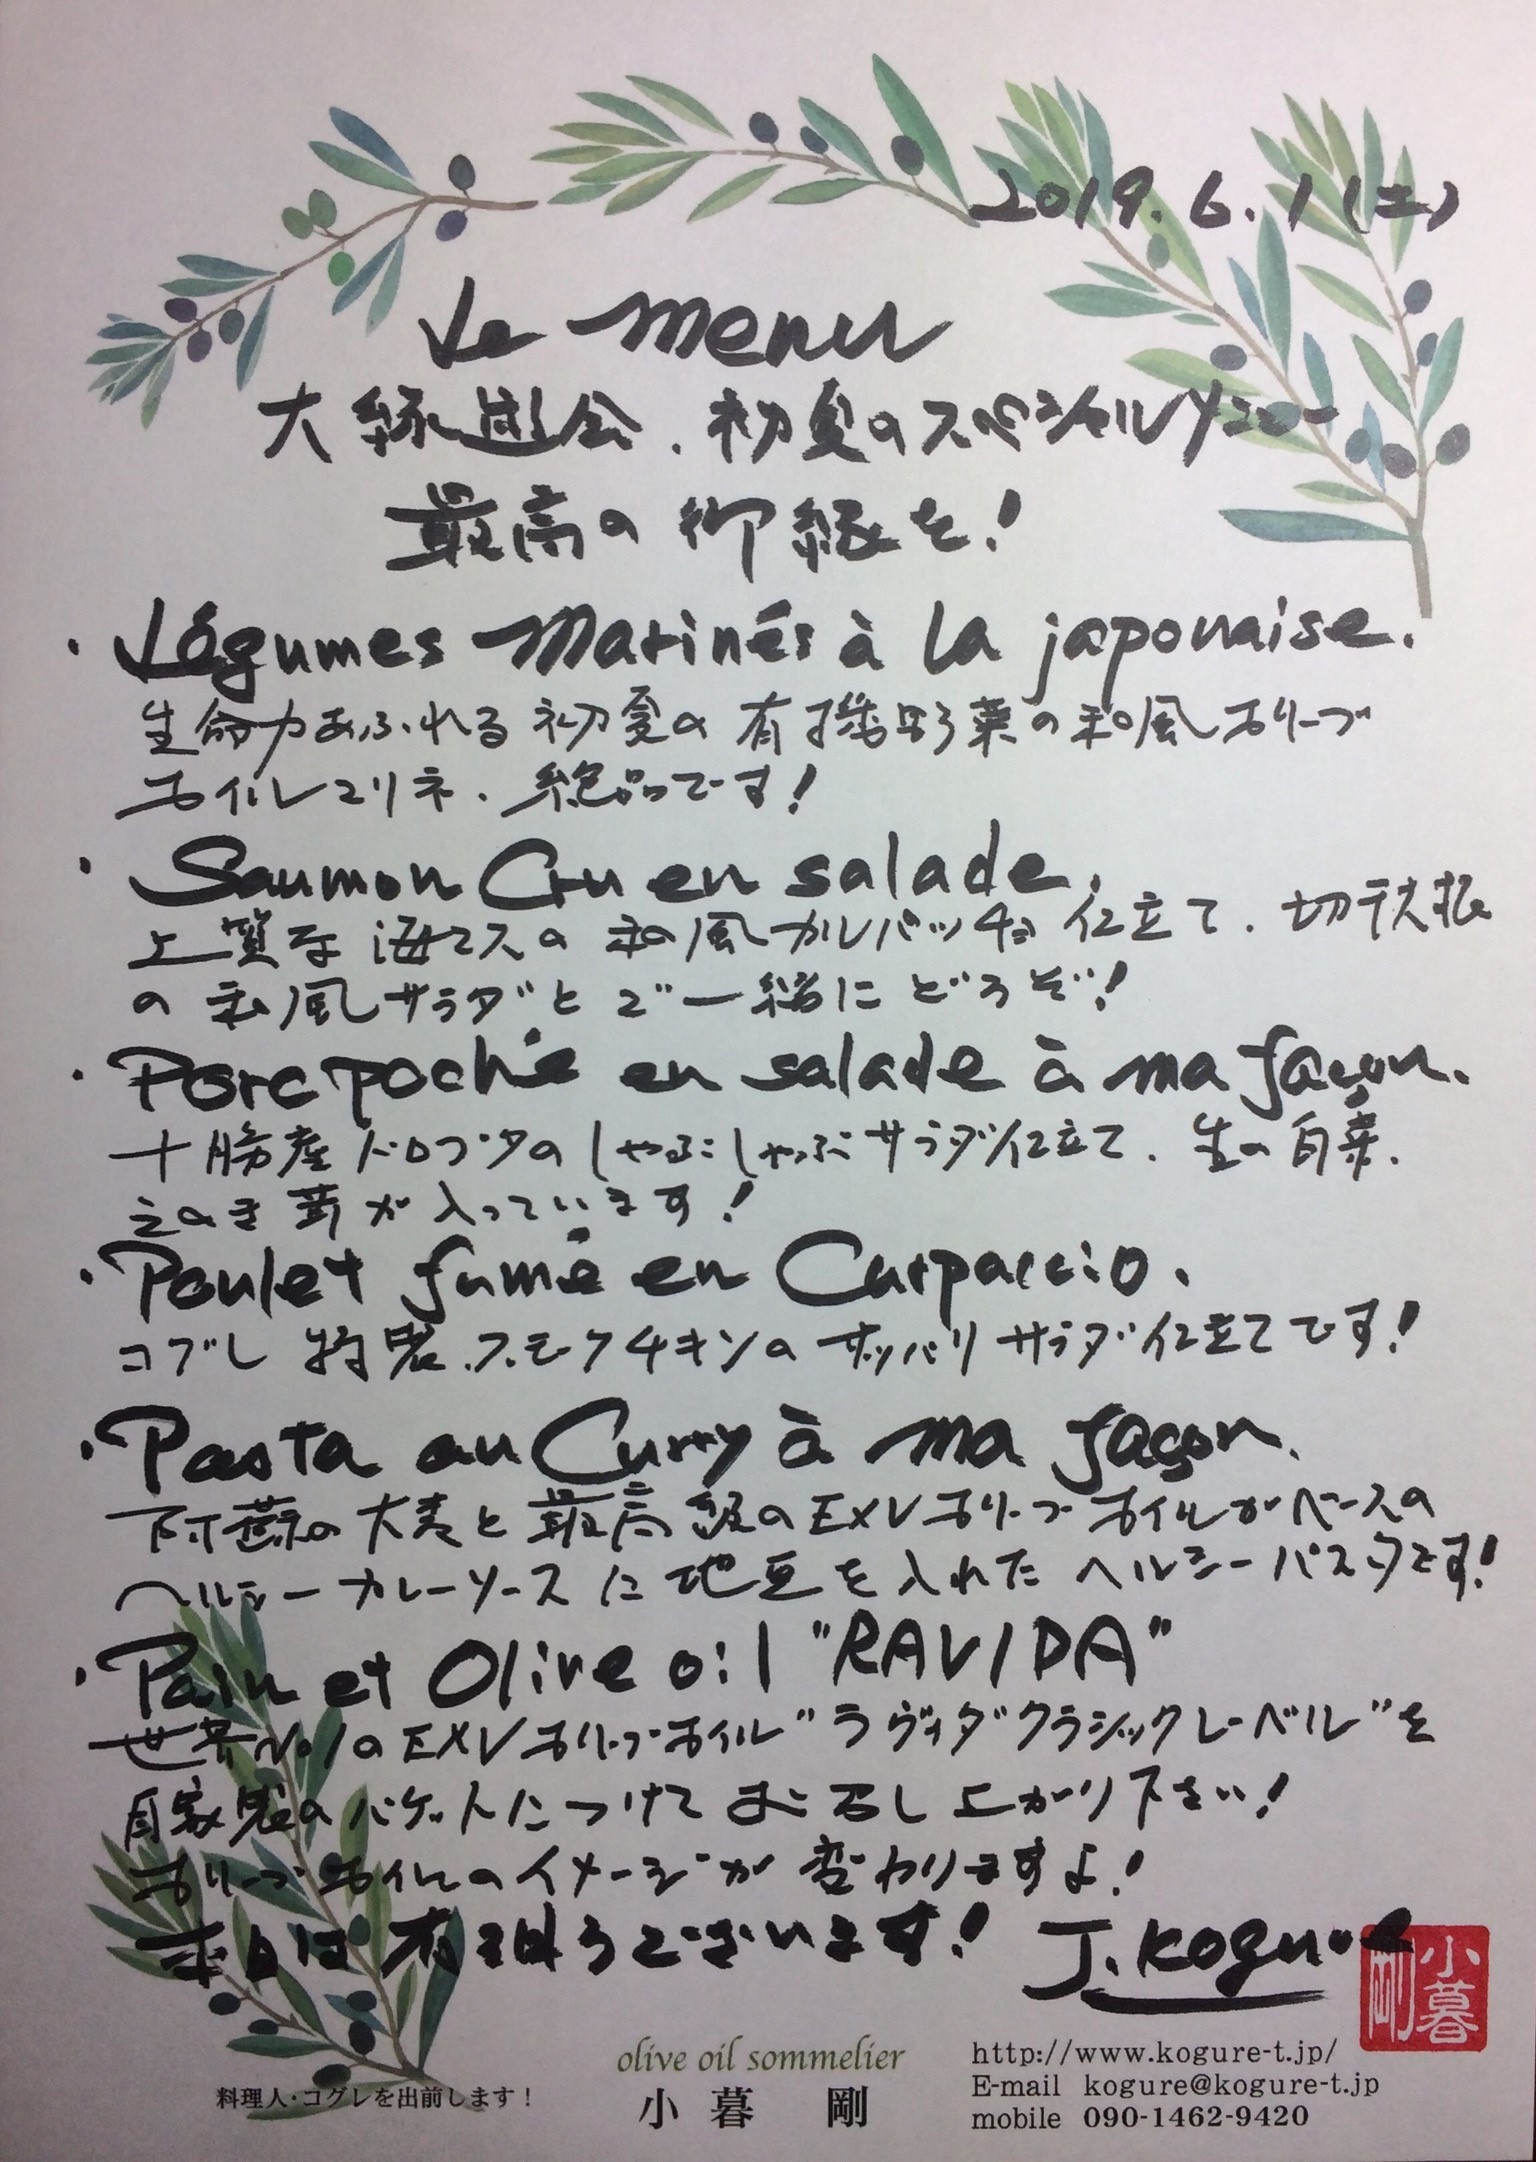 2019.6.1(土)
Le menu
大縁遊会、初夏のスペシャルメニュー
最高の御縁を!
・Légumes Marinés à la japonaise.
生命力あふれる初夏の有機野菜の和風オリーブ
オイルマリネ、絶品です!
・Saumon Cru en salade.
上質な海マスの和風カルパッチョ仕立て、切干大根
の和風サラダとご一緒にどうぞ!
・Porc poché en salade à ma façon.
十勝産ドロブタのしゃぶしゃぶサラダ仕立て、生の白菜、
えのき茸が入っています!
・Poulet fumé en Carpaccio.
コグレ特製、スモークチキンのサッパリサラダ仕立てです!
・Pasta au Curry à ma façon.
阿蘇の大麦と最高級のEXVオリーブオイルがベースの
ヘルシーカレーソースに地豆を入れたヘルシーパスタです!
・Pain et Olive oil "RAVIDA"
世界No.1のEXVオリーブオイル"ラヴィダクラシックレーベル"を
自家製のバゲットにつけてお召し上がり下さい!
オリーブオイルのイメージが変わりますよ!
本日は有難うございます! J.Kogure
小暮
剛
olive oil sommelier
料理人・コグレを出前します!
小暮 剛
http://www.kogure-t.jp/
E-mail kogure@kogure-t.jp
mobile 090-1462-9420